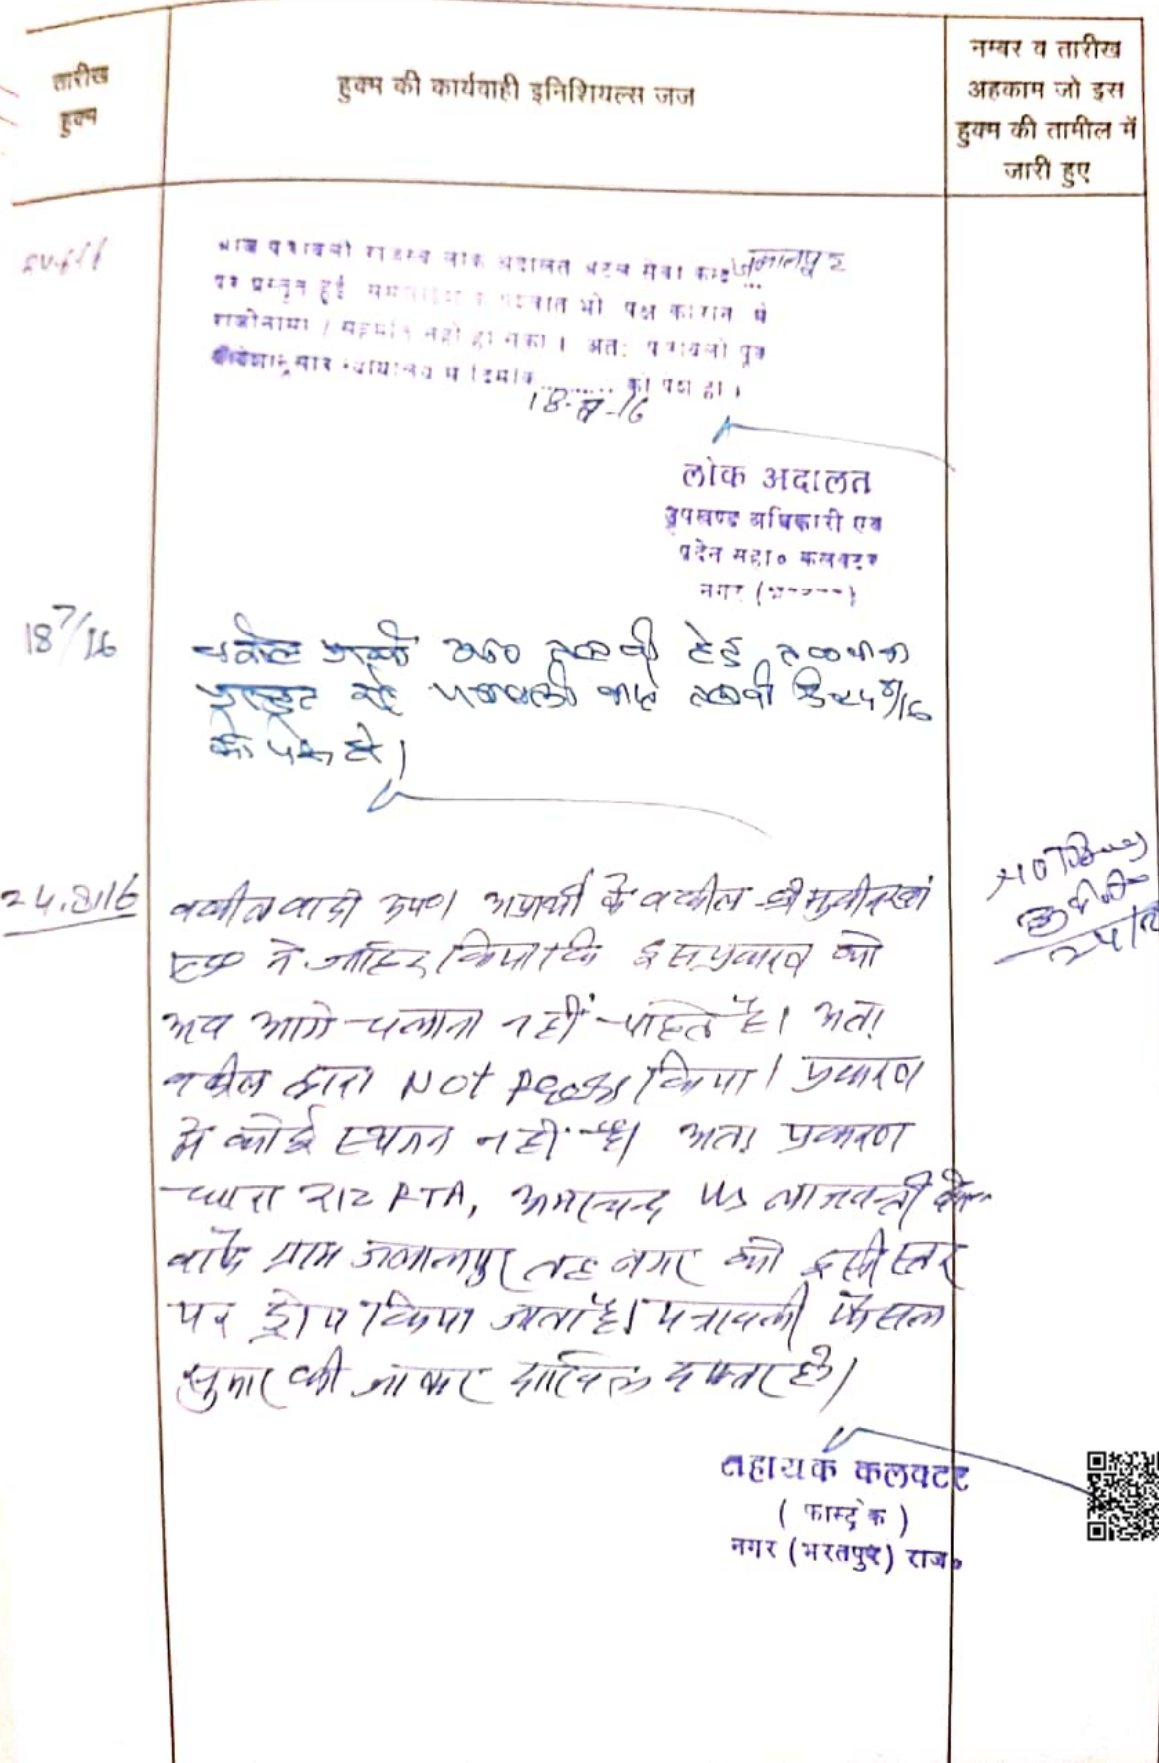 तारीख
हुक्म
हुक्म की कार्यवाही इनिशियल्स जज
नम्बर व तारीख
अहकाम जो इस
हुक्म की तामील में
जारी हुए
आज पत्रावली राजस्व लोक अदालत अटल सेवा केन्द्र जलालपुर
पर प्रस्तुत हुई समझाइश के पश्चात भी पक्ष कारान में
राजीनामा / सहमति नहीं हो सका । अतः पत्रावली पूर्व
न्यायालय में दिनांक 18-7-16 को पेश हो ।
लोक अदालत
उपखण्ड अधिकारी एवं
पदेन सहा० कलक्टर
नगर
18 7/16
तलबी हेतु तलबाना
पत्रावली वास्ते तलबी 24 8/16
को पेश हो।
24.8.16
वकील वादी उप०। अप्रार्थी के वकील श्री
ने जाहिर किया कि इस प्रकरण को
अब आगे चलाना नहीं चाहते है। अतः
वकील द्वारा Not Press किया। प्रकरण
में कोई स्थगन नहीं है। अतः प्रकरण
धारा 212 RTA, अमरचन्द U/s लाजवन्ती
वाके ग्राम जलालपुर तह नगर को इसी स्तर
पर ड्रोप किया जाता है। पत्रावली फैसल
शुमार की जाकर दाखिल दफ्तर हो।
सहायक कलक्टर
( फास्ट्रेक )
नगर (भरतपुर) राज०